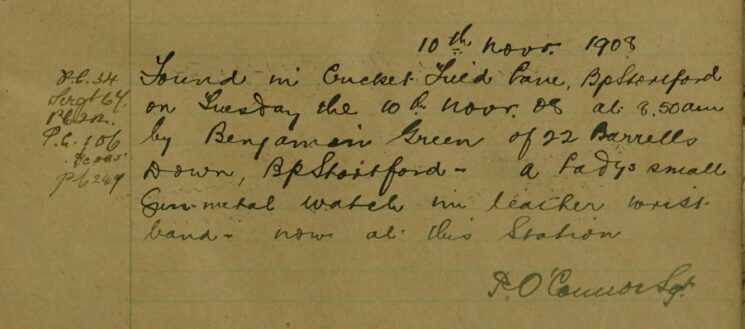 10th Novr. 1908
P.C. 34
Sergt 64
P.C. 202.
P.C. 106
P.C. 249
Found in Cricket Field Lane, Bp Stortford
on Tuesday the 10th Novr. 08 at 8.50am
by Benjamin Green of 22 Barrells
Down, Bp Stortford - a Ladys small
Gun-metal watch in leather wrist
band - now at this Station
P. O'Connor Sgt.